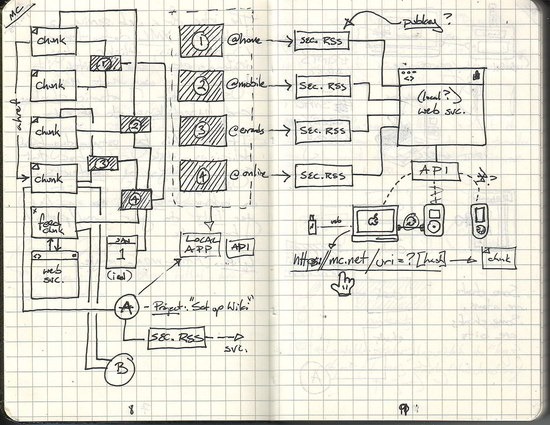 MC
chunk
chunk
chunk
chunk
feed
chunk
web
svc.
1
2
3
4
JAN
1
(ical)
1 @home → SEC. RSS
2 @mobile → SEC. RSS
3 @errands → SEC. RSS
4 @online → SEC. RSS
LOCAL
APP
API
A - Project: "Set up Wiki"
SEC. RSS
svc.
B
8
pubkey?
<>
(local?)
web svc.
API
?
usb
https://mc.net/uri=?[hash] → chunk
9